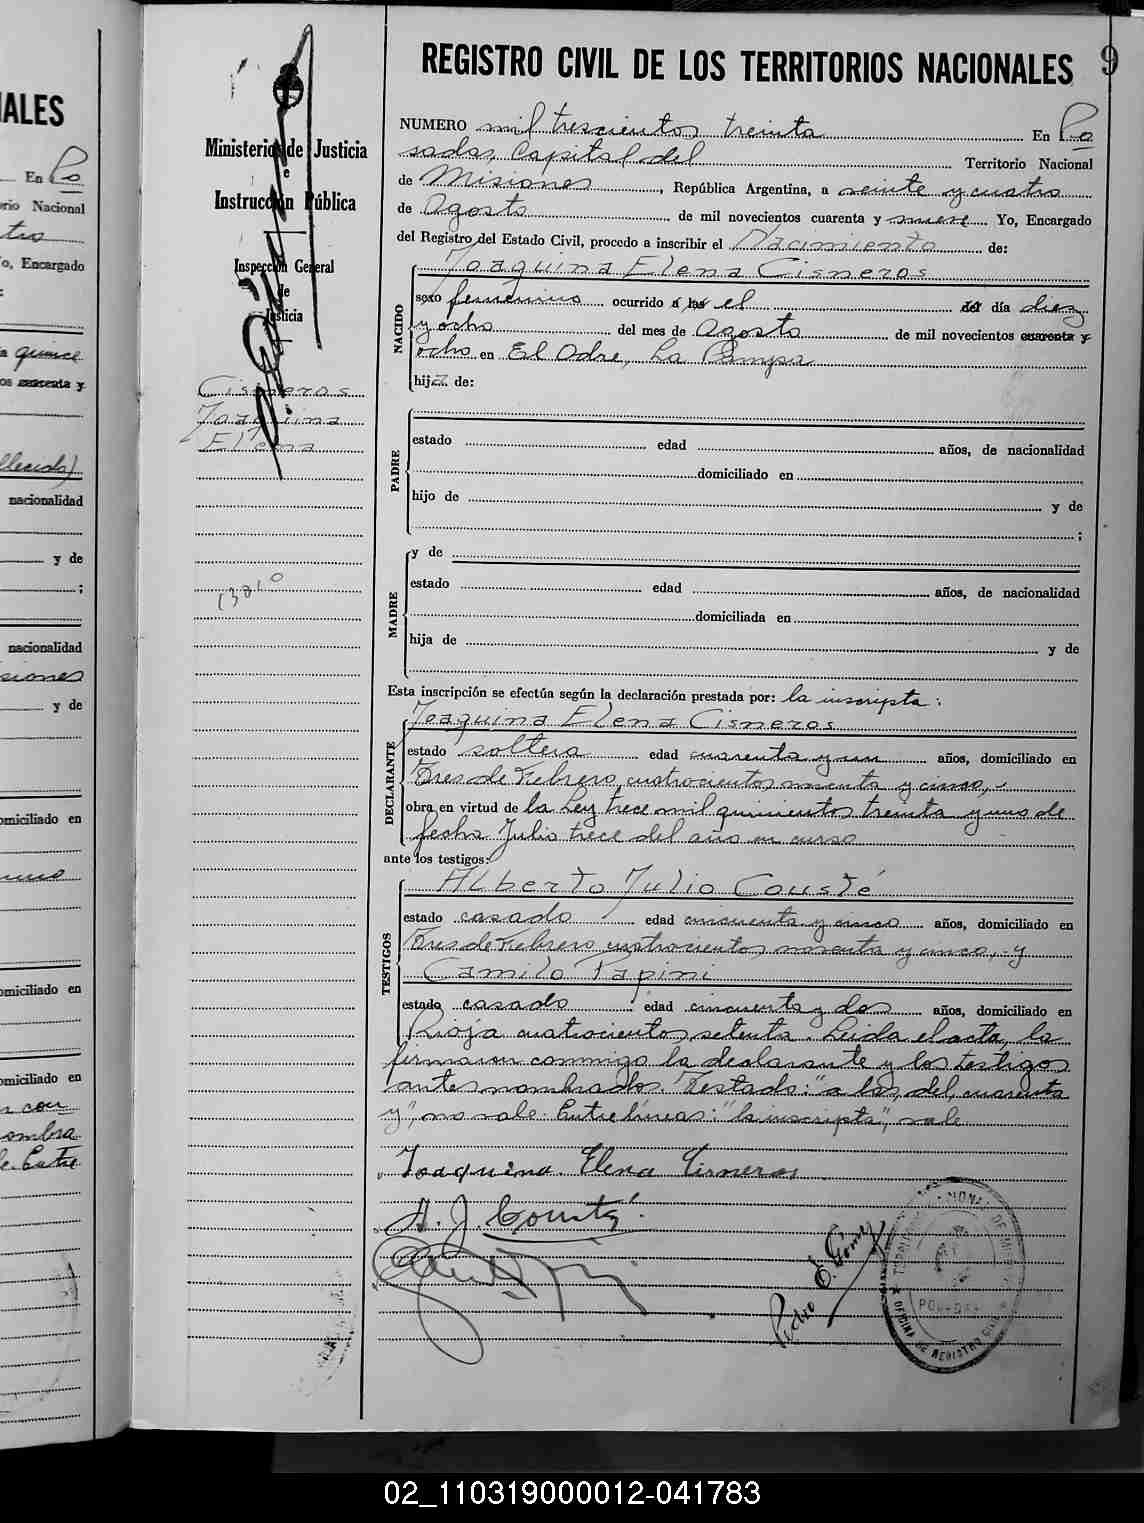 REGISTRO CIVIL DE LOS TERRITORIOS NACIONALES
9
Ministerio de Justicia
e
Instrucción Pública
Inspección General
de
Justicia
Cisneros
Joaquina
Elena
NUMERO mil trescientos treinta En Po
sadas, Capital del Territorio Nacional
de Misiones, República Argentina, a veinte y cuatro
de Agosto de mil novecientos cuarenta y nueve Yo, Encargado
del Registro del Estado Civil, procedo a inscribir el Nacimiento de:
Joaquina Elena Cisneros
NACIDO
sexo femenino ocurrido a las el del día diez
y ocho del mes de Agosto de mil novecientos cuarenta y
ocho en El Odre, La Pampa
hija de:
PADRE
estado edad años, de nacionalidad
domiciliado en
hijo de y de
;
MADRE
y de
estado edad años, de nacionalidad
domiciliada en
hija de y de
Esta inscripción se efectúa según la declaración prestada por: la inscripta:
DECLARANTE
Joaquina Elena Cisneros
estado soltera edad cuarenta y un años, domiciliado en
Tres de Febrero, cuatrocientos noventa y cinco,
obra en virtud de la Ley trece mil quinientos treinta y uno de
fecha Julio trece del año en curso
ante los testigos:
TESTIGOS
Alberto Julio Cousté
estado casado edad cincuenta y cinco años, domiciliado en
Tres de Febrero, cuatrocientos noventa y cinco, y
Camilo Papini
estado casado edad cincuenta y dos años, domiciliado en
Rioja cuatrocientos setenta. Leída el acta, la
firmaron conmigo la declarante y los testigos
antes nombrados. Testado: "a las, del, cuarenta
y", no vale. Entrelíneas: "la inscripta", vale
Joaquina Elena Cisneros
A. J. Cousté
Pedro E. Gomez
OFICINA DE REGISTRO CIVIL
IALES
En Po
rio Nacional
o, Encargado
quince
nacionalidad
y de
;
nacionalidad
siones
y de
omiciliado en
omiciliado en
omiciliado en
02_110319000012-041783